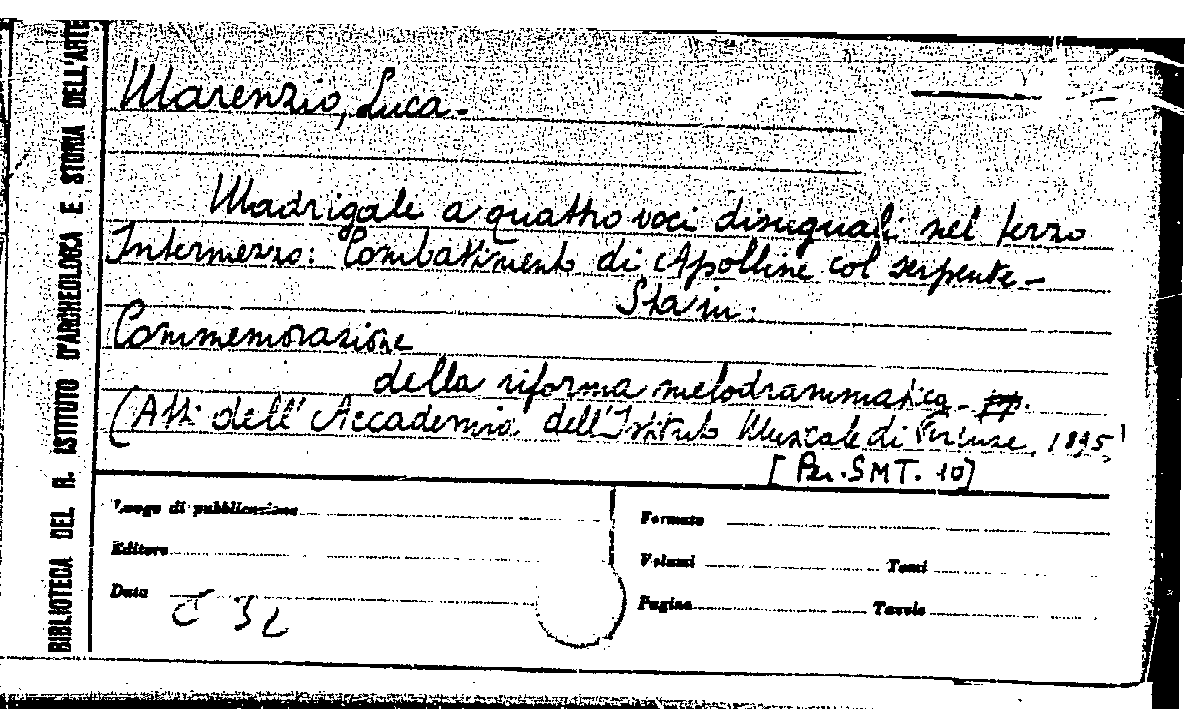 BIBLIOTECA DEL R. ISTITUTO D'ARCHEOLOGIA E STORIA DELL'ARTE
Marenzio, Luca.
Madrigale a quattro voci disuguali nel terzo
Intermezzo: Combattimento di Apolline col serpente -
Sta in:
Commemorazione
della riforma melodrammatica - pp.
(Atti dell'Accademia dell'Istituto Musicale di Firenze, 1895)
[Per. SMT. 10]
Luogo di pubblicazione
Formato
Editore
Volumi Tomi
Data
Pagine Tavole